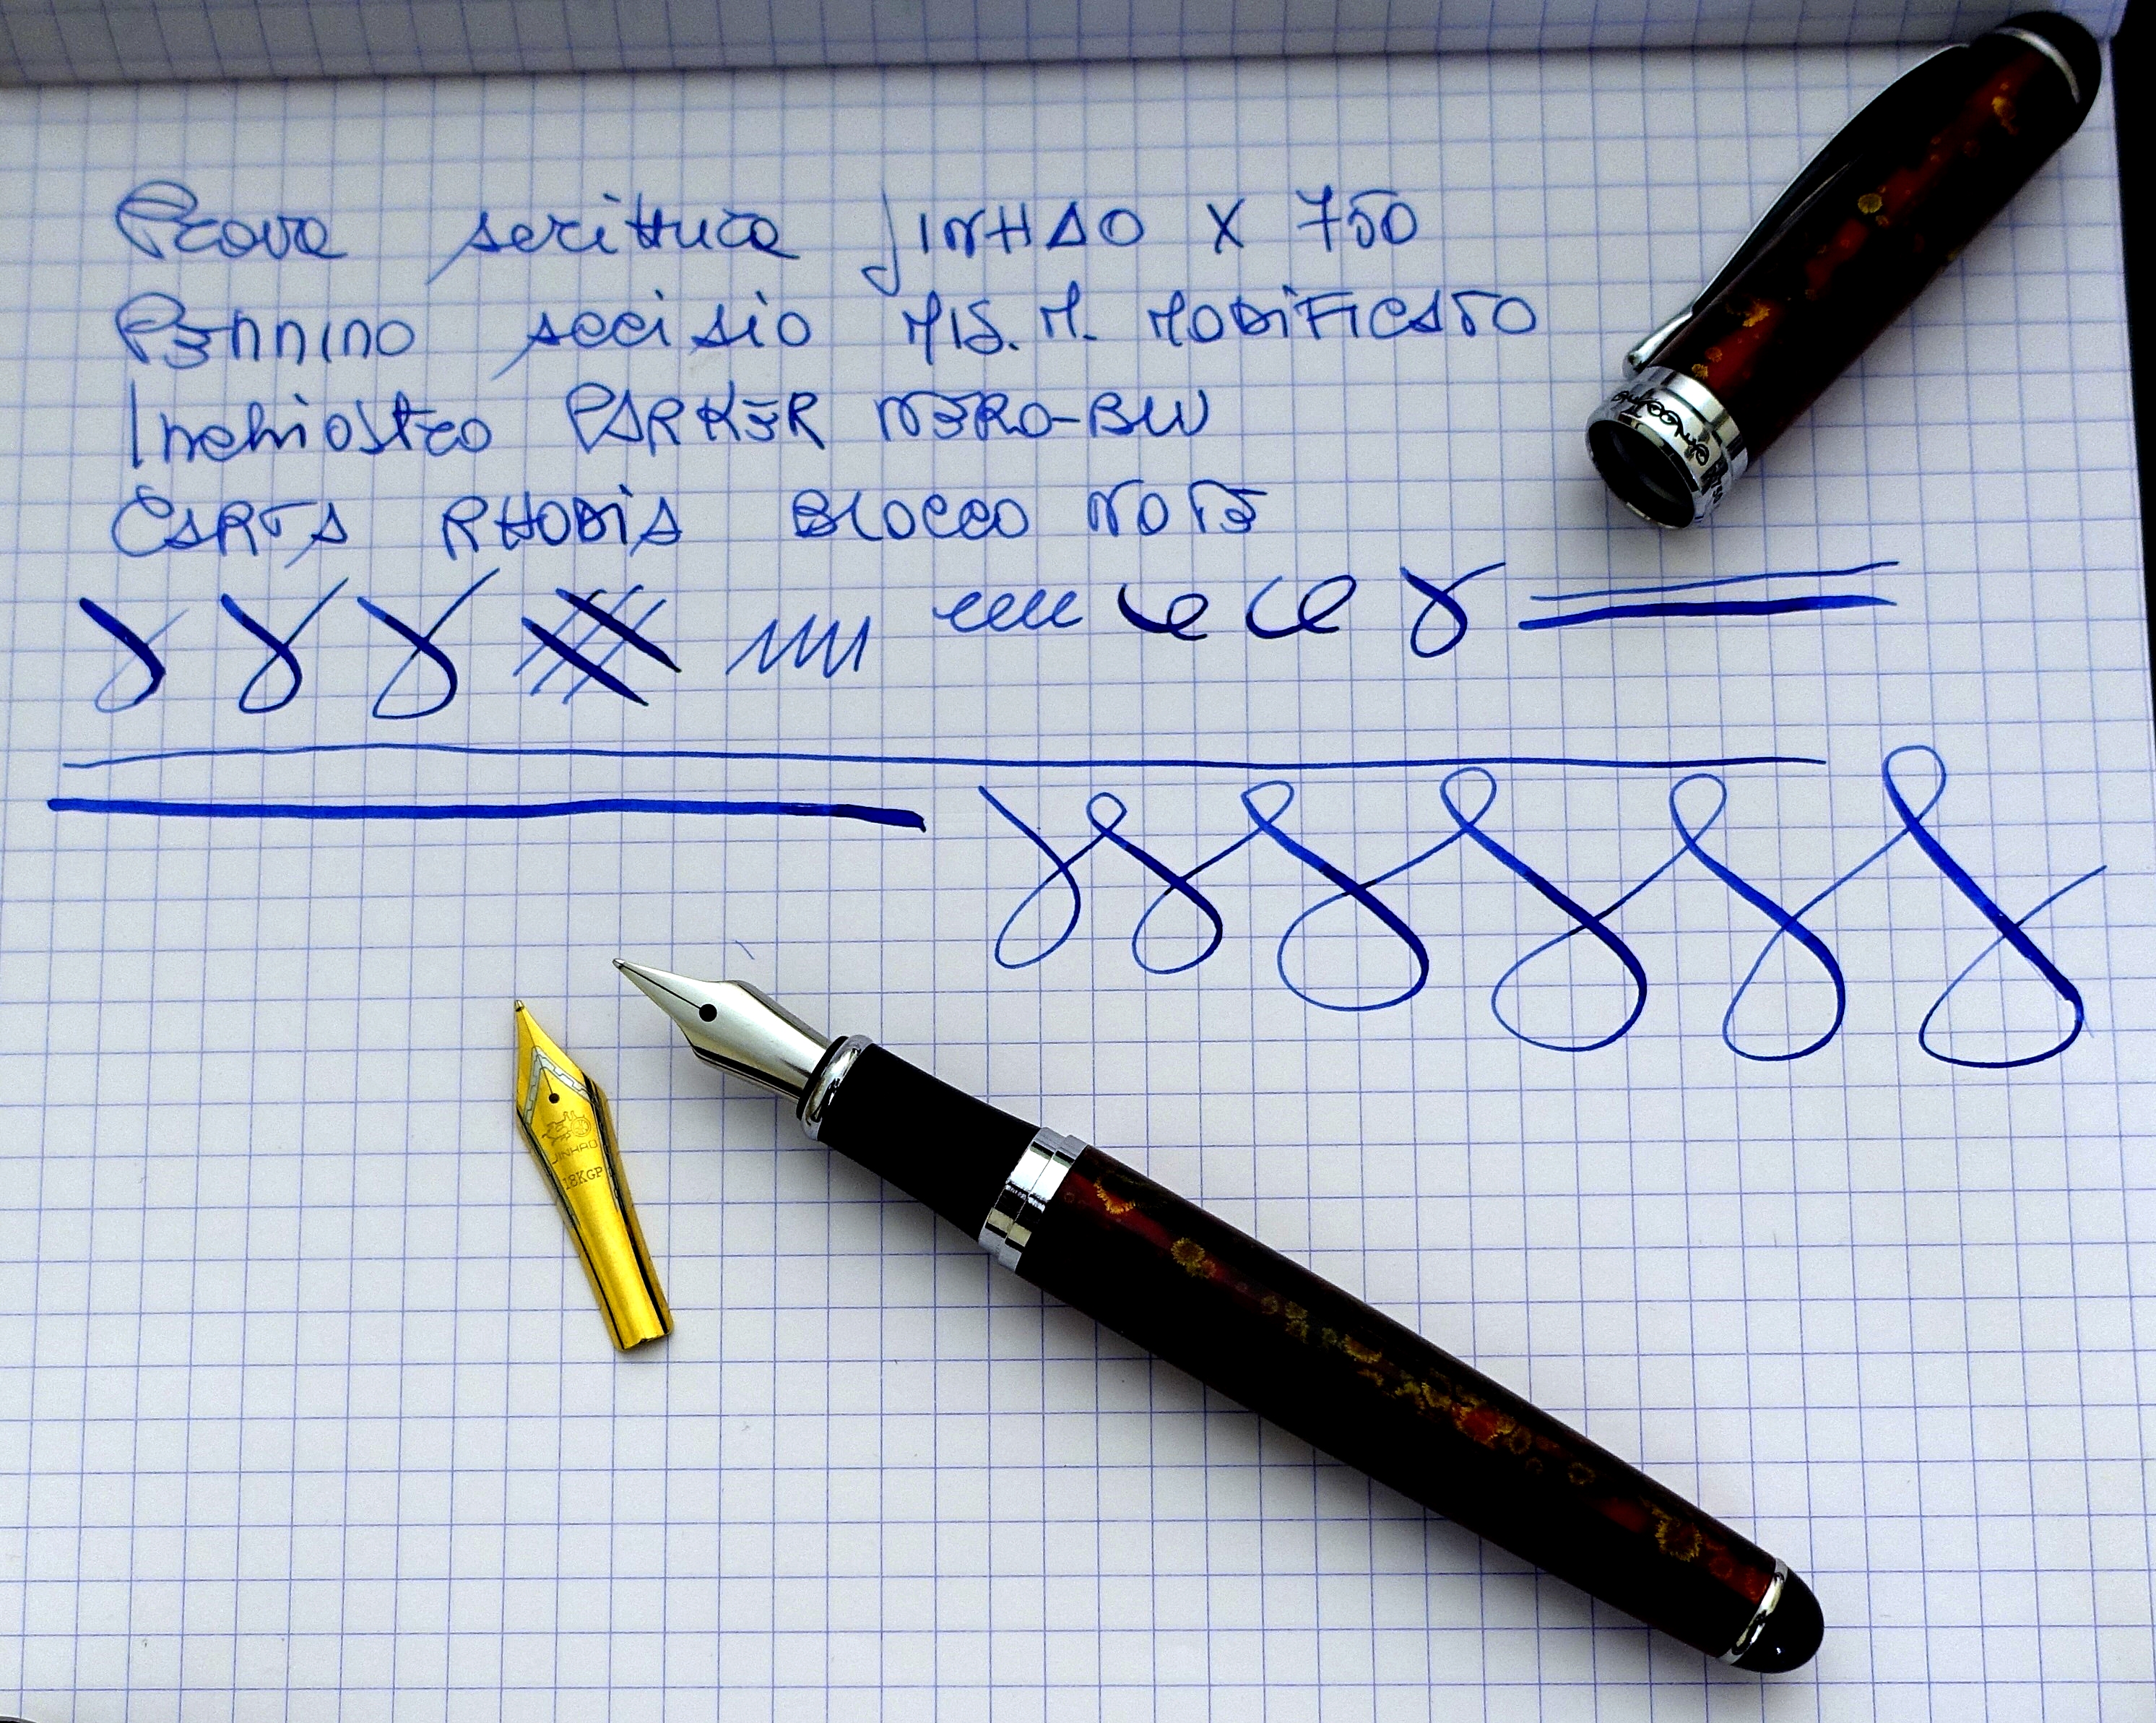 Prova scrittura JINHAO X 750
PENNINO acciaio MIS. M. MODIFICATO
Inchiostro PARKER NERO-BLU
CARTA RHODIA BLOCCO NOTE
JINHAO
18KGP